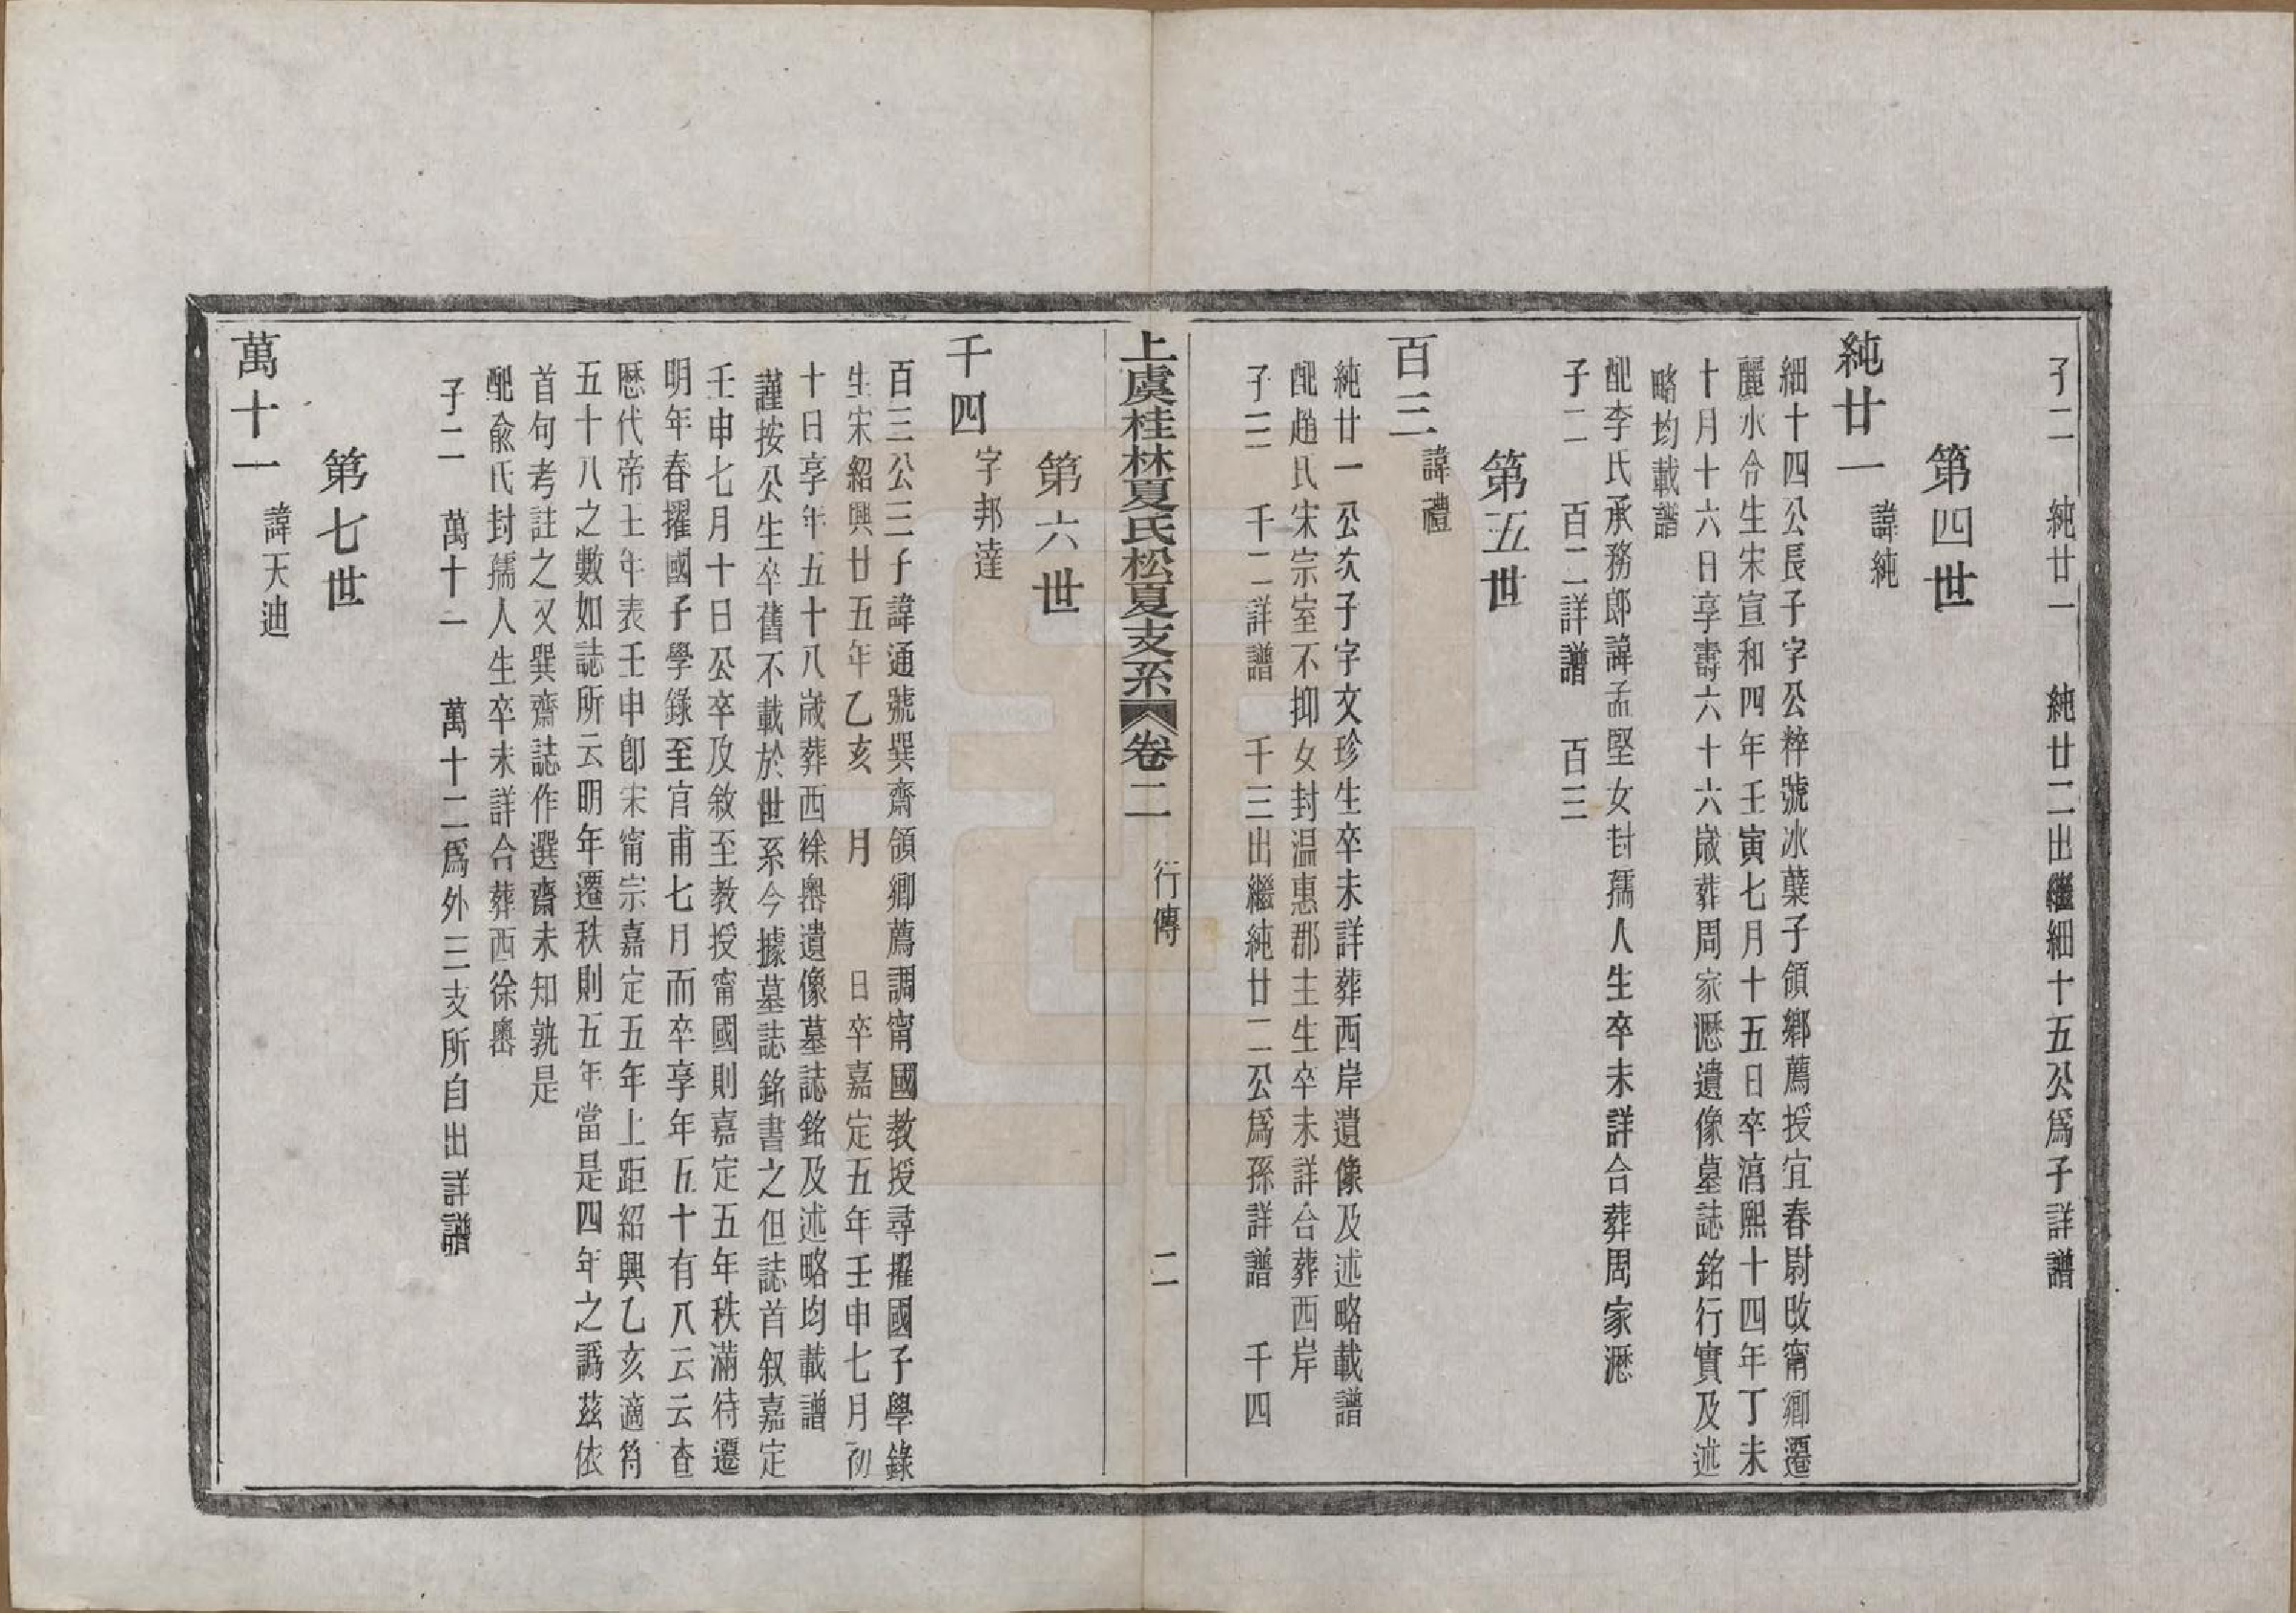 子二　純廿一　純廿二出繼細十五公爲子詳譜
第四世
純廿一　諱純
細十四公長子字公粹號冰蘗子領鄉薦授宜春尉改甯卿遷
麗水令生宋宣和四年壬寅七月十五日卒淳熙十四年丁未
十月十六日享壽六十六歲葬周家瀝遺像墓誌銘行實及述
略均載譜
配李氏承務郎諱孟堅女封孺人生卒未詳合葬周家瀝
子二　百二詳譜　百三
第五世
百三　諱禮
純廿一公次子字文珍生卒未詳葬西岸遺像及述略載譜
配趙氏宋宗室不抑女封温惠郡主生卒未詳合葬西岸
子三　千二詳譜　千三出繼純廿二公爲孫詳譜　千四
上虞桂林夏氏松夏支系　卷二　行傳　二
第六世
千四　字邦達
百三公三子諱通號巽齋領鄉薦調甯國教授尋擢國子學錄
生宋紹興廿五年乙亥　月　日卒嘉定五年壬申七月初
十日享年五十八歲葬西徐嶴遺像墓誌銘及述略均載譜
謹按公生卒舊不載於世系今據墓誌銘書之但誌首叙嘉定
壬申七月十日公卒及敘至教授甯國則嘉定五年秩滿待遷
明年春擢國子學錄至官甫七月而卒享年五十有八云云查
歷代帝王年表壬申卽宋甯宗嘉定五年上距紹興乙亥適符
五十八之數如誌所云明年遷秩則五年當是四年之譌茲依
首句考註之又巽齋誌作選齋未知孰是
配兪氏封孺人生卒未詳合葬西徐嶴
子二　萬十一　萬十二爲外三支所自出詳譜
第七世
萬十一　諱天迪